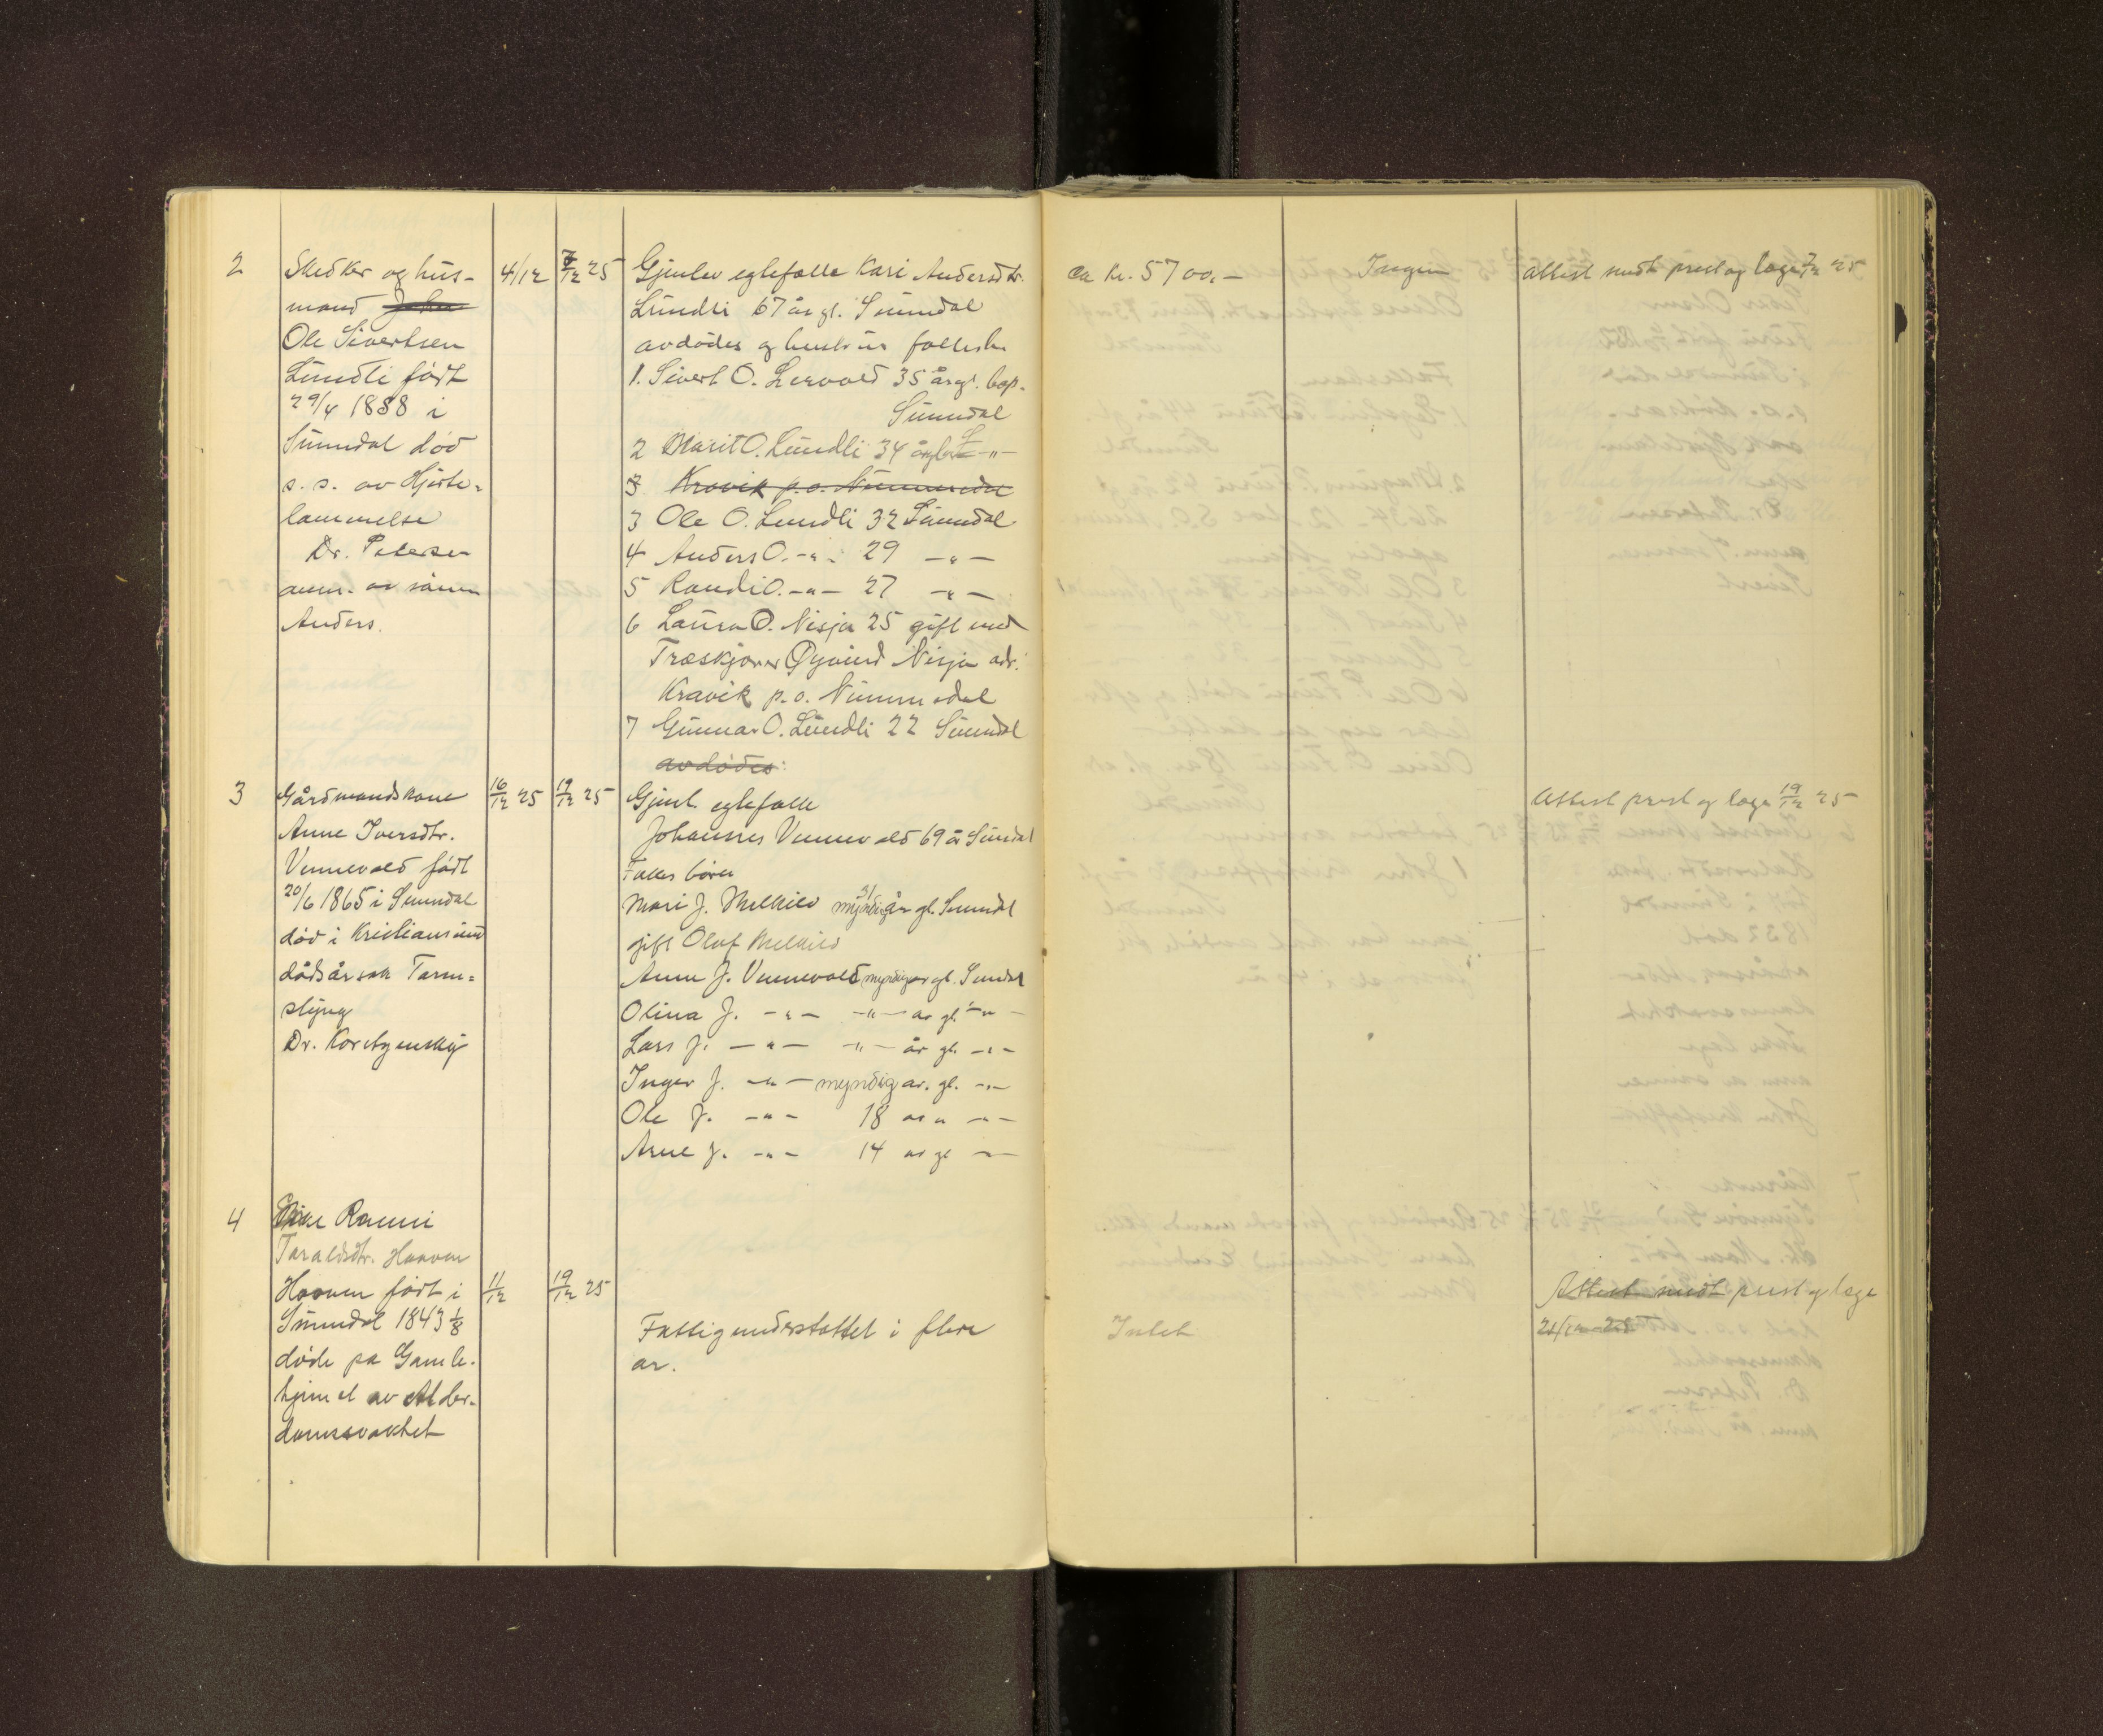 2
Skedker og hus-
mand John
Ole Sivertsen
Lundli født
29/4 1858 i
Sunndal død
s. s. av Hjerte-
lammelse
Dr. Petersen
anm. av sønen
Anders.
4/12
7/12 25
Gjenlev egtefælle Kari Andersdtr.
Lundli 67 år gl. Sunndal
avdødes og hendes fællesbn
1. Sivert O. Lervold 35 år gl.
Sunndal
2 Marit O. Lundli 34 år gl. -"-
3 Kravik p.o. Nummedal
3 Ole O. Lundli 32 Sunndal
4 Anders O. -"- 29 -"-
5 Randi O. -"- 27 -"-
6 Laura O. Nisja 25 gift med
Træskjærer Øyvind Nisja adr.
Kravik p.o. Nummedal
7 Gunnar O. Lundli 22 Sunndal
avdødes
ca Kr. 5700.-
Ingen
attest sendt prest og læge 7/12 25
3
Gårdmandskone
Anne Iversdtr.
Vennevold født
20/6 1865 i Sunndal
død i Kristiansund
dødsårsak Tarm-
slyng
Dr. Koritzensky
16/12 25
19/12 25
Gjenl. egtefælle
Johannes Vennevold 69 år Sundal
Fælles børn
Mari J. Melkild myndig 31 år gl. Sunndal
gift Olaf Melkild
Anne J. Vennevold myndig år gl. Sundal
Olina J. -"- -"- år gl. -"-
Lars J. -"- -"- år gl. -"-
Inger J. -"- myndig år. gl. -"-
Ole J. -"- 18 år " -"-
Arne J. -"- 14 år gl -"-
Attest prest og læge 19/12 25
4
Enke Ranni
Taraldsdtr. Hoaven
Hoaven født i
Sunndal 1843 1/8
døde på Gamle-
hjemet av Alder-
domssvakhet
11/12
19/12 25
Fattigunderstøttet i flere
år.
Intet
Attest sendt prest og læge
21/12 25